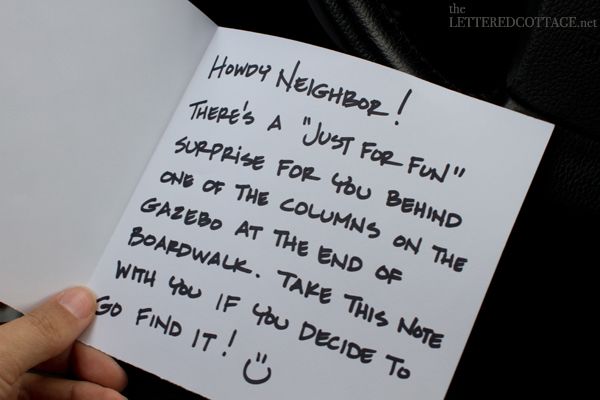 the
LETTEREDCOTTAGE.net
HOWDY NEIGHBOR!
THERE'S A "JUST FOR FUN"
SURPRISE FOR YOU BEHIND
ONE OF THE COLUMNS ON THE
GAZEBO AT THE END OF
BOARDWALK. TAKE THIS NOTE
WITH YOU IF YOU DECIDE TO
GO FIND IT! :)